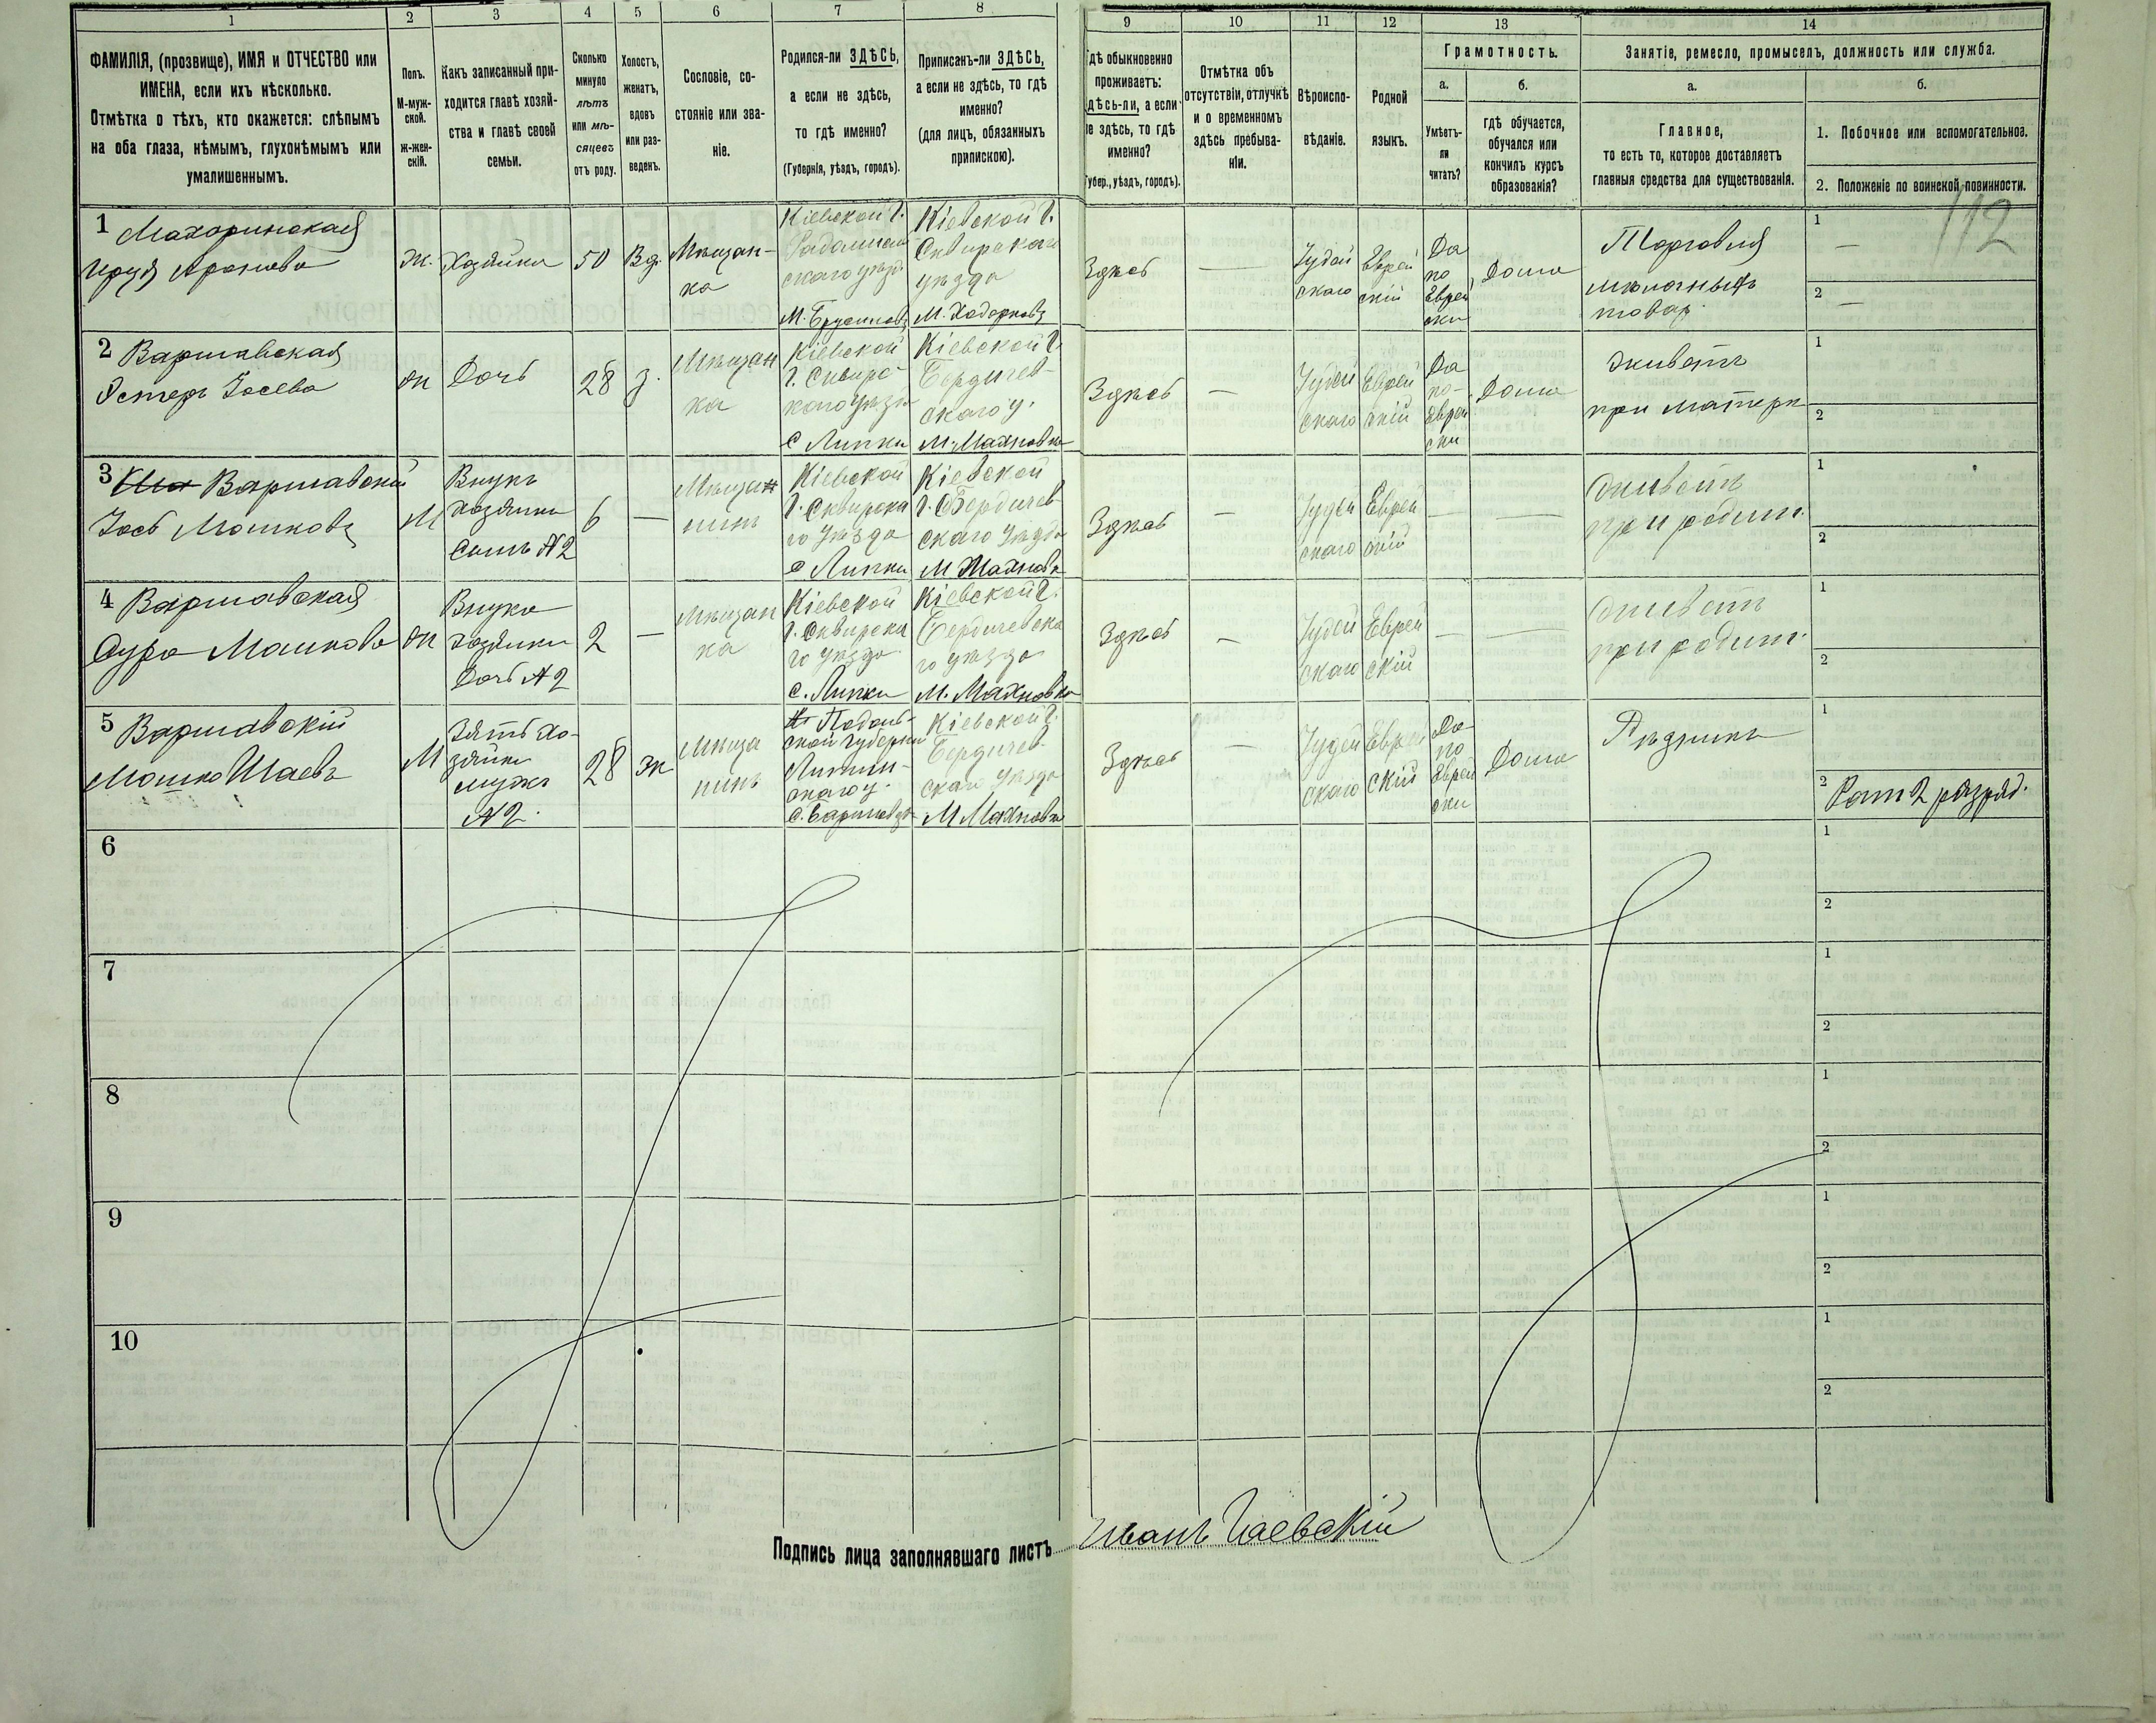 1 2 3 4 5 6 7 8 9 10 11 12 13 14
ФАМИЛІЯ, (прозвище), ИМЯ и ОТЧЕСТВО или
ИМЕНА, если ихъ нѣсколько.
Отмѣтка о тѣхъ, кто окажется: слѣпымъ
на оба глаза, нѣмымъ, глухонѣмымъ или
умалишеннымъ.
Полъ.
М-муж-
ской.
ж-жен-
скій.
Какъ записанный при-
ходится главѣ хозяй-
ства и главѣ своей
семьи.
Сколько
минуло
лѣтъ
или мѣ-
сяцевъ
отъ роду.
Холостъ,
женатъ,
вдовъ
или раз-
веденъ.
Сословіе, со-
стояніе или зва-
ніе.
Родился-ли ЗДѢСЬ,
а если не здѣсь,
то гдѣ именно?
(Губернія, уѣздъ, городъ).
Приписанъ-ли ЗДѢСЬ,
а если не здѣсь, то гдѣ
именно?
(для лицъ, обязанныхъ
припискою).
дѣ обыкновенно
проживаетъ:
дѣсь-ли, а если
не здѣсь, то гдѣ
именно?
Губер., уѣздъ, городъ).
Отмѣтка объ
отсутствіи, отлучкѣ
и о временномъ
здѣсь пребыва-
ніи.
Вѣроиспо-
вѣданіе.
Родной
языкъ.
Грамотность.
а.
Умѣетъ-
ли
читать?
б.
гдѣ обучается,
обучался или
кончилъ курсъ
образованія?
Занятіе, ремесло, промыселъ, должность или служба.
а.
Главное,
то есть то, которое доставляетъ
главныя средства для существованія.
б.
1. Побочное или вспомогательное.
2. Положеніе по воинской повинности.
112
1 Махоринская
Аронова
Ж.
Хозяйка
50
Вд.
Мѣщан-
ка
Кіевской г.
Радомысль
скаго уѣзд.
М. Брусиловъ
Кіевской г.
Сквирскаго
уѣзда
М. Ходорковъ
Здѣсь
—
Іудей
скаго
Еврей
скій
Да
по
Еврей
ски
Дома
Торговля
мелочнымъ
товар.
1
—
2
—
2 Варшавская
Эстеръ Іосева
Ж
Дочь
28
З.
Мѣщан
ка
Кіевской
г. Сквирс-
каго уѣзда
с Липки
Кіевской г.
Бердичев-
скаго у.
М. Махновка
Здѣсь
—
Іудей
скаго
Еврей
скій
Да
по-
Еврей
ски
Дома
Живетъ
при матери
1
2
3 Варшавскій
Іось Мошковъ
М
Внукъ
хозяйки
сынъ №2
6
—
Мѣщан
нинъ
Кіевской
г. Сквирска
го уѣзда
с Липки
Кіевской
г. Бердичев
скаго уѣзда
М Махновк
Здѣсь
—
Іудей
скаго
Еврей
скій
—
—
Живетъ
при родит.
1
2
4 Варшавская
Сура Мошкова
Ж
Внука
хозяйки
Дочь №2
2
—
Мѣщан
ка
Кіевской
г. Сквирска
го уѣзда
с. Липки
Кіевской г.
Бердичевска
го уѣзда
М. Махновка
Здѣсь
—
Іудей
скаго
Еврей
скій
—
—
Живетъ
при родит.
1
2
5 Варшавскій
Мошко Шаевъ
М
Зять хо-
зяйки
мужъ
№2.
28
Ж
Мѣща
нинъ
Подоль-
ской губерни
Литин-
скаго у.
Кіевской г.
Бердичев
скаго уѣзда
М Махновк
Здѣсь
—
Іудей
скаго
Еврей
скій
Да
по
Еврей
ски
Дома
Рѣзникъ
1
2 Рат 2 разряд.
6
1
2
7
1
2
8
1
2
9
1
2
10
1
2
Подпись лица заполнявшаго листъ Иванъ Гаевскій